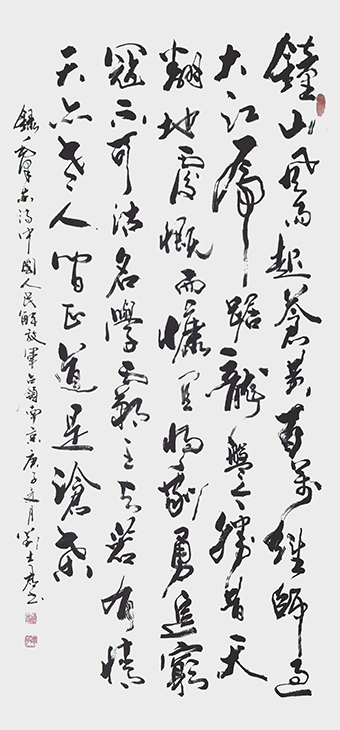 鐘山风雨起蒼黄百萬雄師过
大江虎踞龍盤今勝昔天
翻地覆慨而慷宜将剩勇追窮
寇不可沽名學霸王天若有情
天亦老人间正道是滄桑
錄毛澤东詩中國人民解放軍占領南京庚子月劉士书